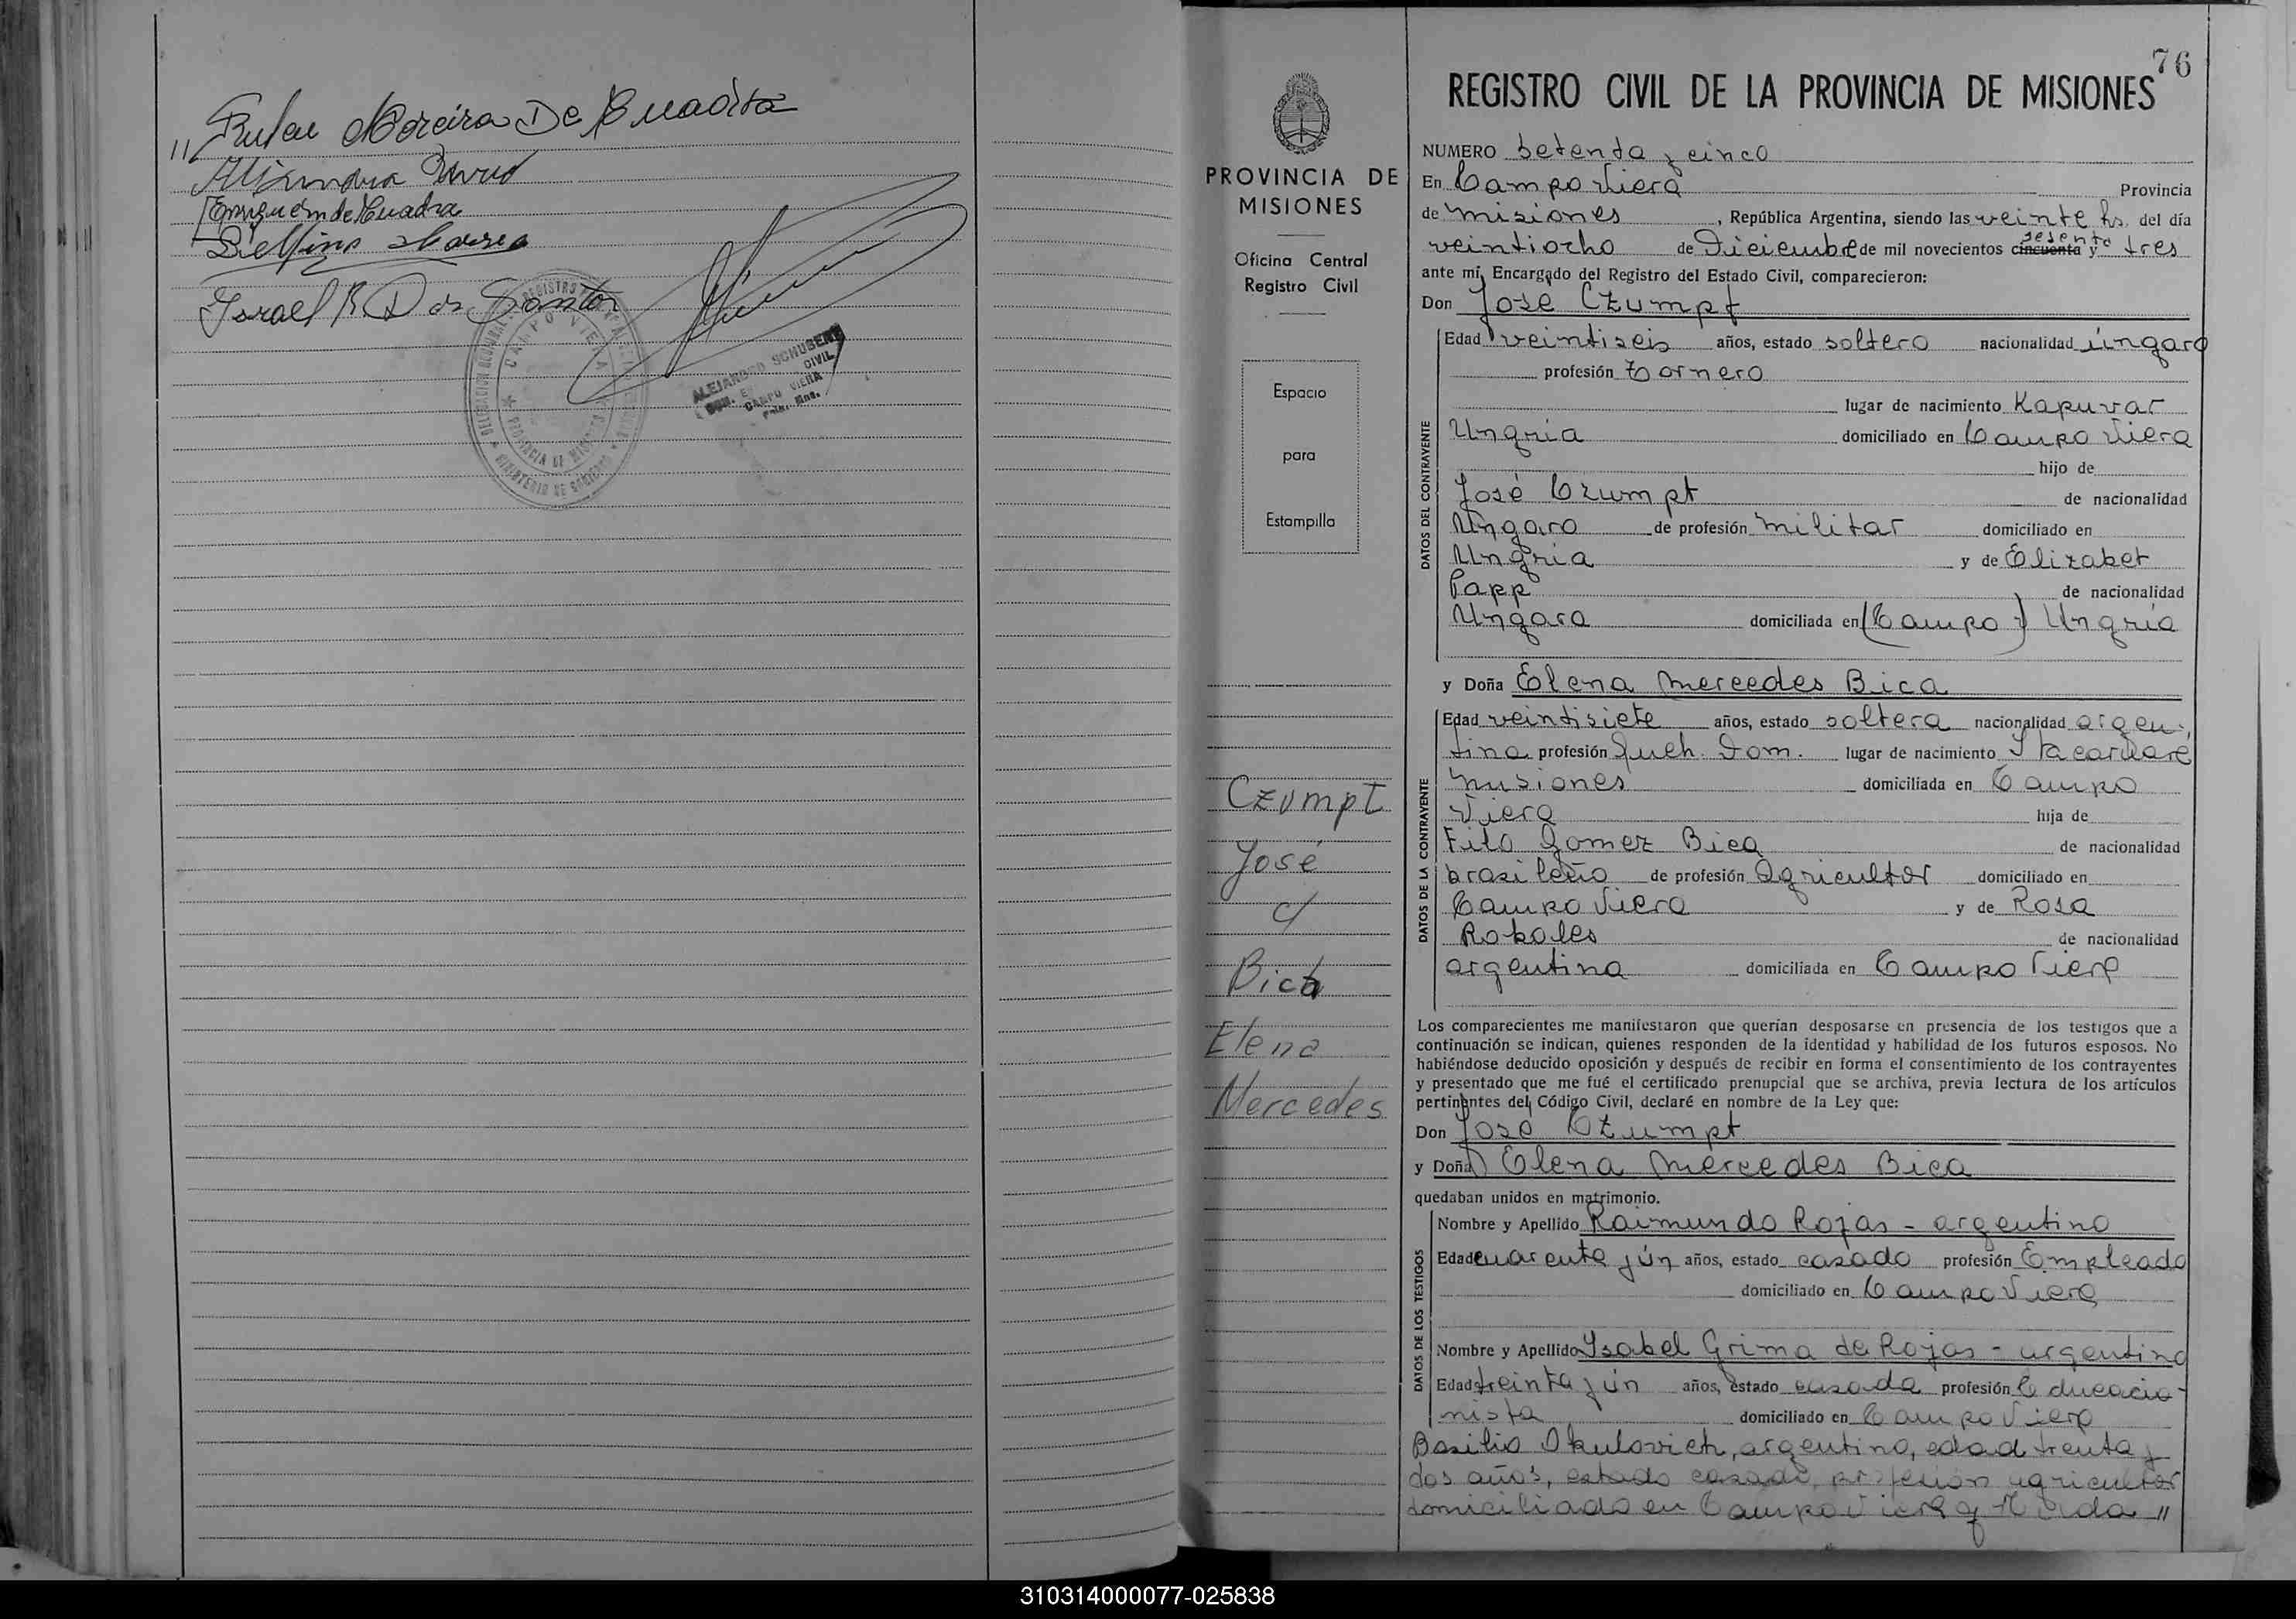 Moreira De Cuadra
Enrique M de Cuadra
Israel R Dos Santos
CAMPO VIERA
PROVINCIA DE MISIONES
ALEJANDRO SCHUBERT
CIVIL
CAMPO VIERA
76
PROVINCIA DE
MISIONES
Oficina Central
Registro Civil
Espacio
para
Estampilla
Czumpt
José
c/
Bica
Elena
Mercedes
REGISTRO CIVIL DE LA PROVINCIA DE MISIONES
NUMERO Setenta y cinco
En Campo Viera Provincia
de Misiones, República Argentina, siendo las veinte hs. del día
veintiocho de Diciembre de mil novecientos cincuenta sesenta y tres
ante mí, Encargado del Registro del Estado Civil, comparecieron:
Don José Czumpt
DATOS DEL CONTRAYENTE
Edad veintiseis años, estado soltero nacionalidad úngaro
profesión Tornero
lugar de nacimiento Kapuvar
Ungria domiciliado en Campo Viera
hijo de
José Czumpt de nacionalidad
Ungaro de profesión Militar domiciliado en
Ungria y de Elizabet
Papp de nacionalidad
Ungara domiciliada en (Campo) Ungria
y Doña Elena Mercedes Bica
DATOS DE LA CONTRAYENTE
Edad veintisiete años, estado soltera nacionalidad argen-
tina profesión Queh. Dom. lugar de nacimiento Itacaruaré
Misiones domiciliada en Campo
Viera hija de
Fito Gomez Bica de nacionalidad
brasileño de profesión Agricultor domiciliado en
Campo Viera y de Rosa
Robales de nacionalidad
argentina domiciliada en Campo Viera
Los comparecientes me manifestaron que querían desposarse en presencia de los testigos que a
continuación se indican, quienes responden de la identidad y habilidad de los futuros esposos. No
habiéndose deducido oposición y después de recibir en forma el consentimiento de los contrayentes
y presentado que me fué el certificado prenupcial que se archiva, previa lectura de los artículos
pertinentes del Código Civil, declaré en nombre de la Ley que:
Don José Czumpt
y Doña Elena Mercedes Bica
quedaban unidos en matrimonio.
DATOS DE LOS TESTIGOS
Nombre y Apellido Raimundo Rojas - argentino
Edad cuarenta y ún años, estado casado profesión Empleado
domiciliado en Campo Viera
Nombre y Apellido Ysabel Grima de Rojas - argentina
Edad treinta y ún años, estado casada profesión Educacio-
nista domiciliado en Campo Viera
Basilio Okulovich, argentino, edad trenta y
dos años, estado casado, profesión agricultor
domiciliado en Campo Viera y "
310314000077-025838